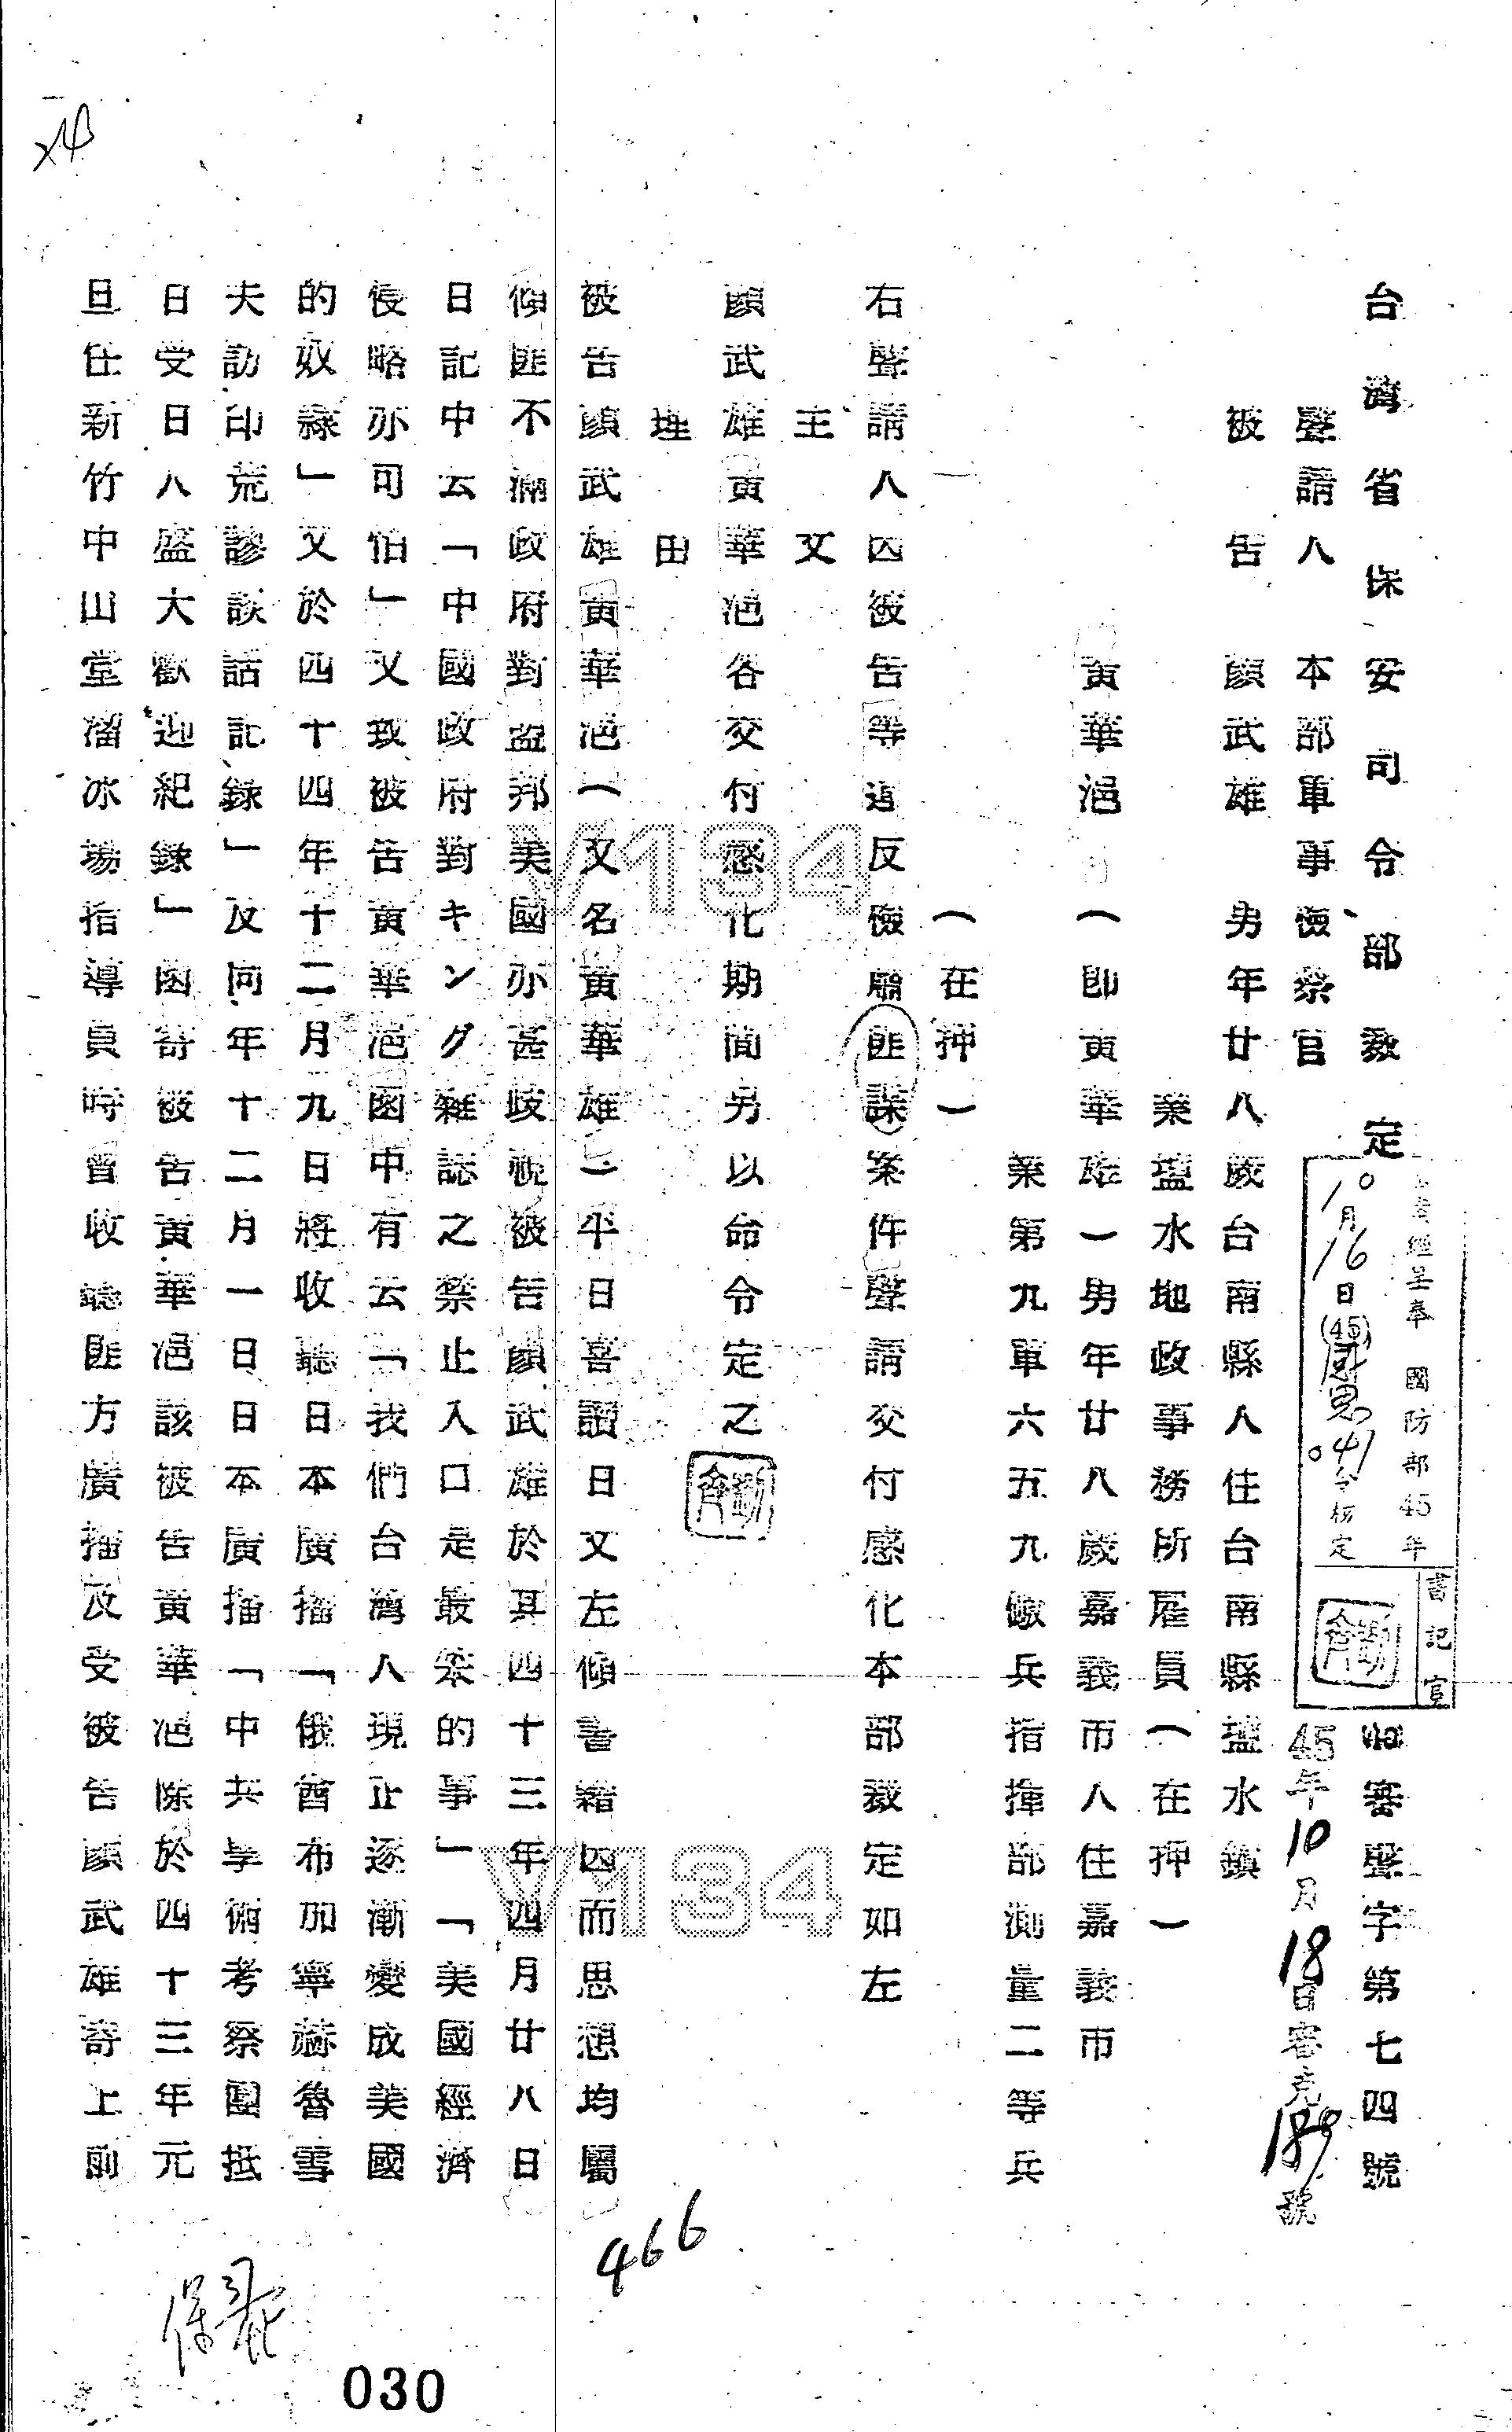 台灣省保安司令部裁定
審聲字第七四號
本案經呈奉 國防部45年
10月16日(45)041令核定
書記官
45年10月18日審克189號
聲請人 本部軍事檢察官
被告 顏武雄 男年廿八歲台南縣人住台南縣鹽水鎮
業鹽水地政事務所雇員(在押)
黃華浥(即黃華雄)男年廿八歲嘉義市人住嘉義市
業第九軍六五九砲兵指揮部測量二等兵
(在押)
右聲請人因被告等違反檢肅匪諜案件聲請交付感化本部裁定如左
主文
顏武雄黃華浥各交付感化期間另以命令定之
理由
被告顏武雄黃華浥(又名黃華雄)平日喜讀日文左傾書籍因而思想均屬
傾匪不滿政府對盟邦美國亦甚歧視被告顏武雄於其四十三年四月廿八日
日記中云「中國政府對キング雜誌之禁止入口是最笨的事」「美國經濟
侵略亦可怕」又致被告黃華浥函中有云「我們台灣人現止逐漸變成美國
的奴隸」又於四十四年十二月九日將收聽日本廣播「俄酋布加寧赫魯雪
夫訪印荒謬談話記錄」及同年十二月一日日本廣播「中共學術考察團抵
日受日人盛大歡迎紀錄」函寄被告黃華浥該被告黃華浥除於四十三年元
旦任新竹中山堂溜冰場指導員時曾收聽匪方廣播及受被告顏武雄寄上前
466
030
V134
V134